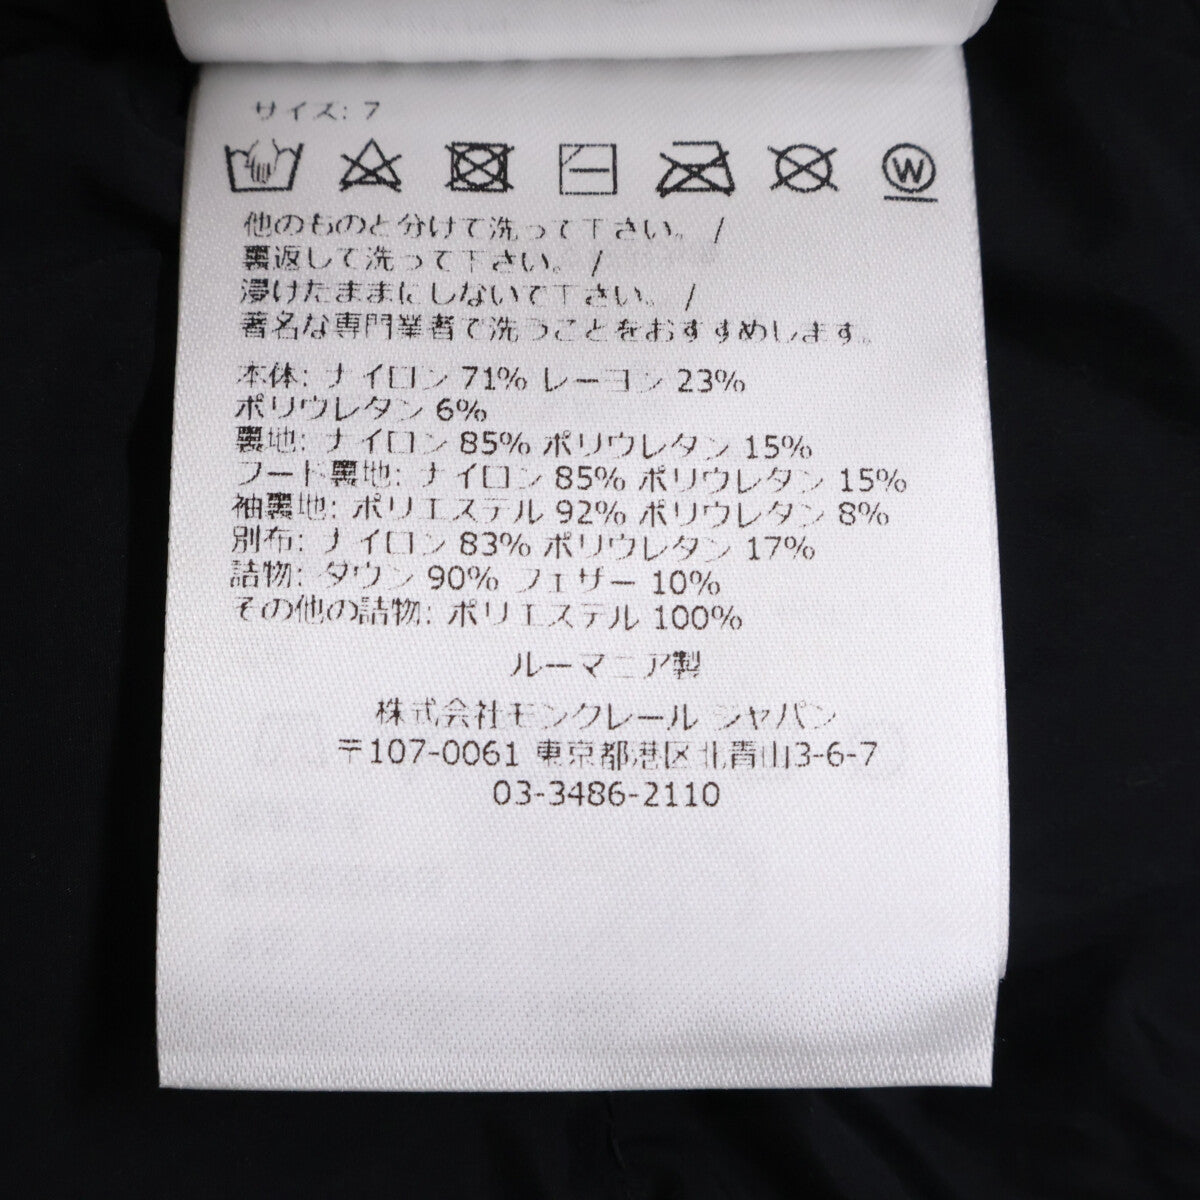 サイズ: 7
W
他のものと分けて洗って下さい。 /
裏返して洗って下さい。 /
浸けたままにしないで下さい。 /
著名な専門業者で洗うことをおすすめします。
本体: ナイロン 71% レーヨン 23%
ポリウレタン 6%
裏地: ナイロン 85% ポリウレタン 15%
フード裏地: ナイロン 85% ポリウレタン 15%
袖裏地: ポリエステル 92% ポリウレタン 8%
別布: ナイロン 83% ポリウレタン 17%
詰物: ダウン 90% フェザー 10%
その他の詰物: ポリエステル 100%
ルーマニア製
株式会社モンクレール ジャパン
〒107-0061 東京都港区北青山3-6-7
03-3486-2110